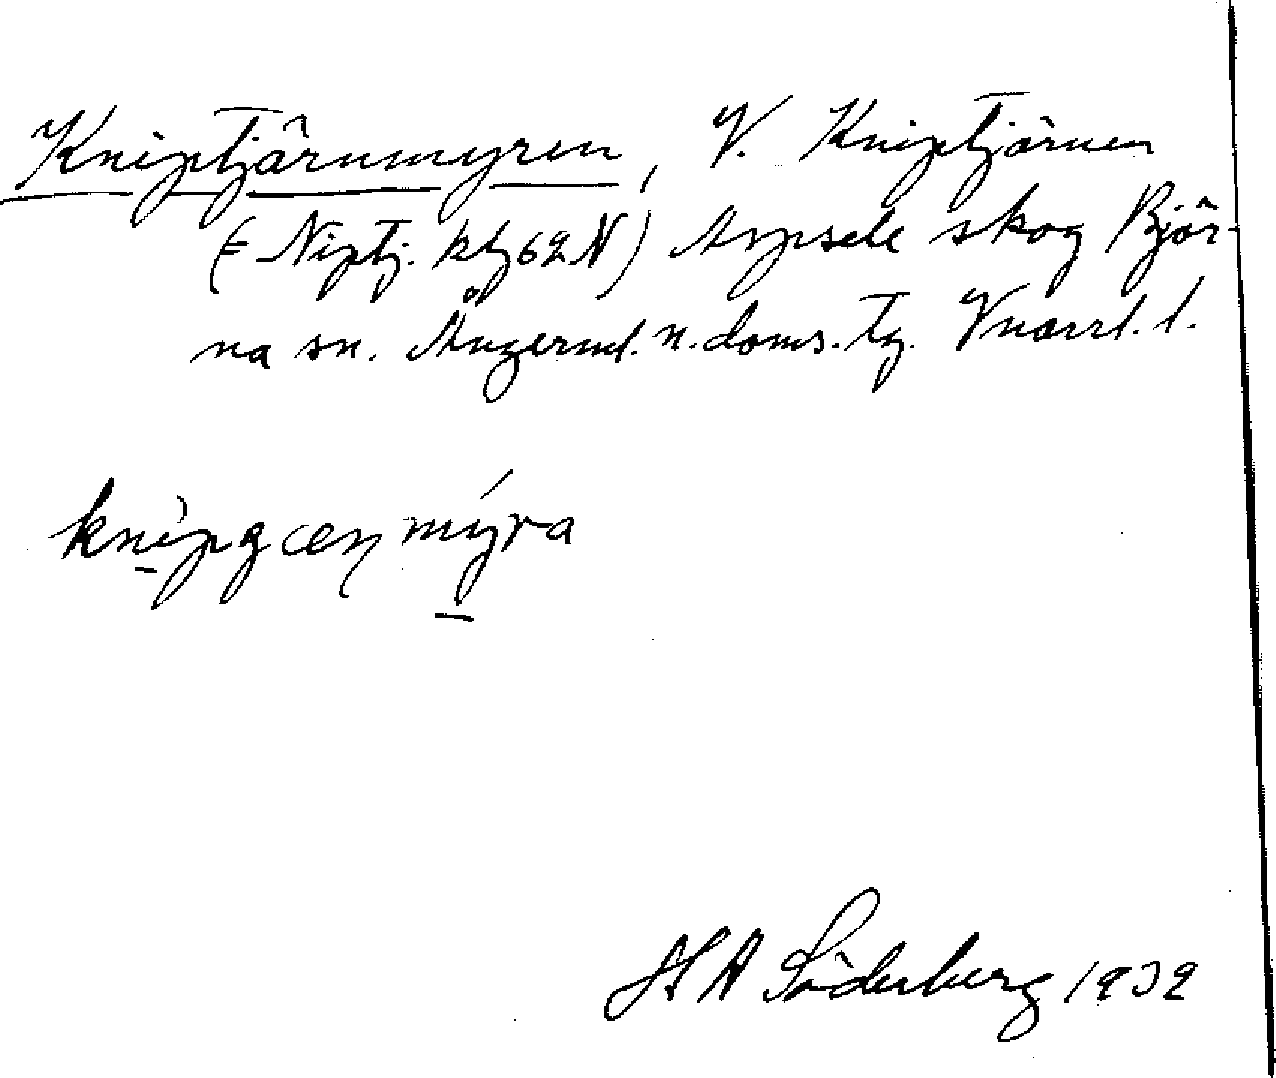 Kniptjärnmyren, V. Kniptjärnen
(= Niptj. kbl 62 N) Aspsele skog Björ-
na sn. Ångerml. n. doms. tg. Vnorrl. l.
knipçœn mýra
H A Söderberg 1932